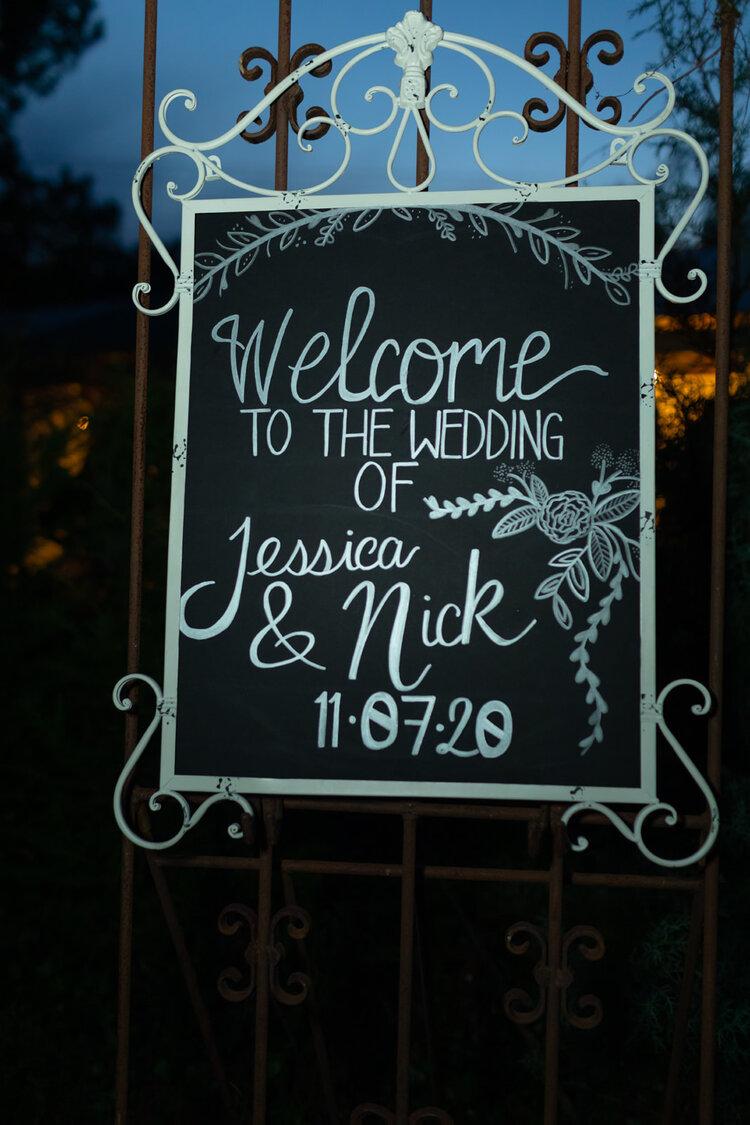 Welcome
TO THE WEDDING
OF
Jessica
& Nick
11·07·20